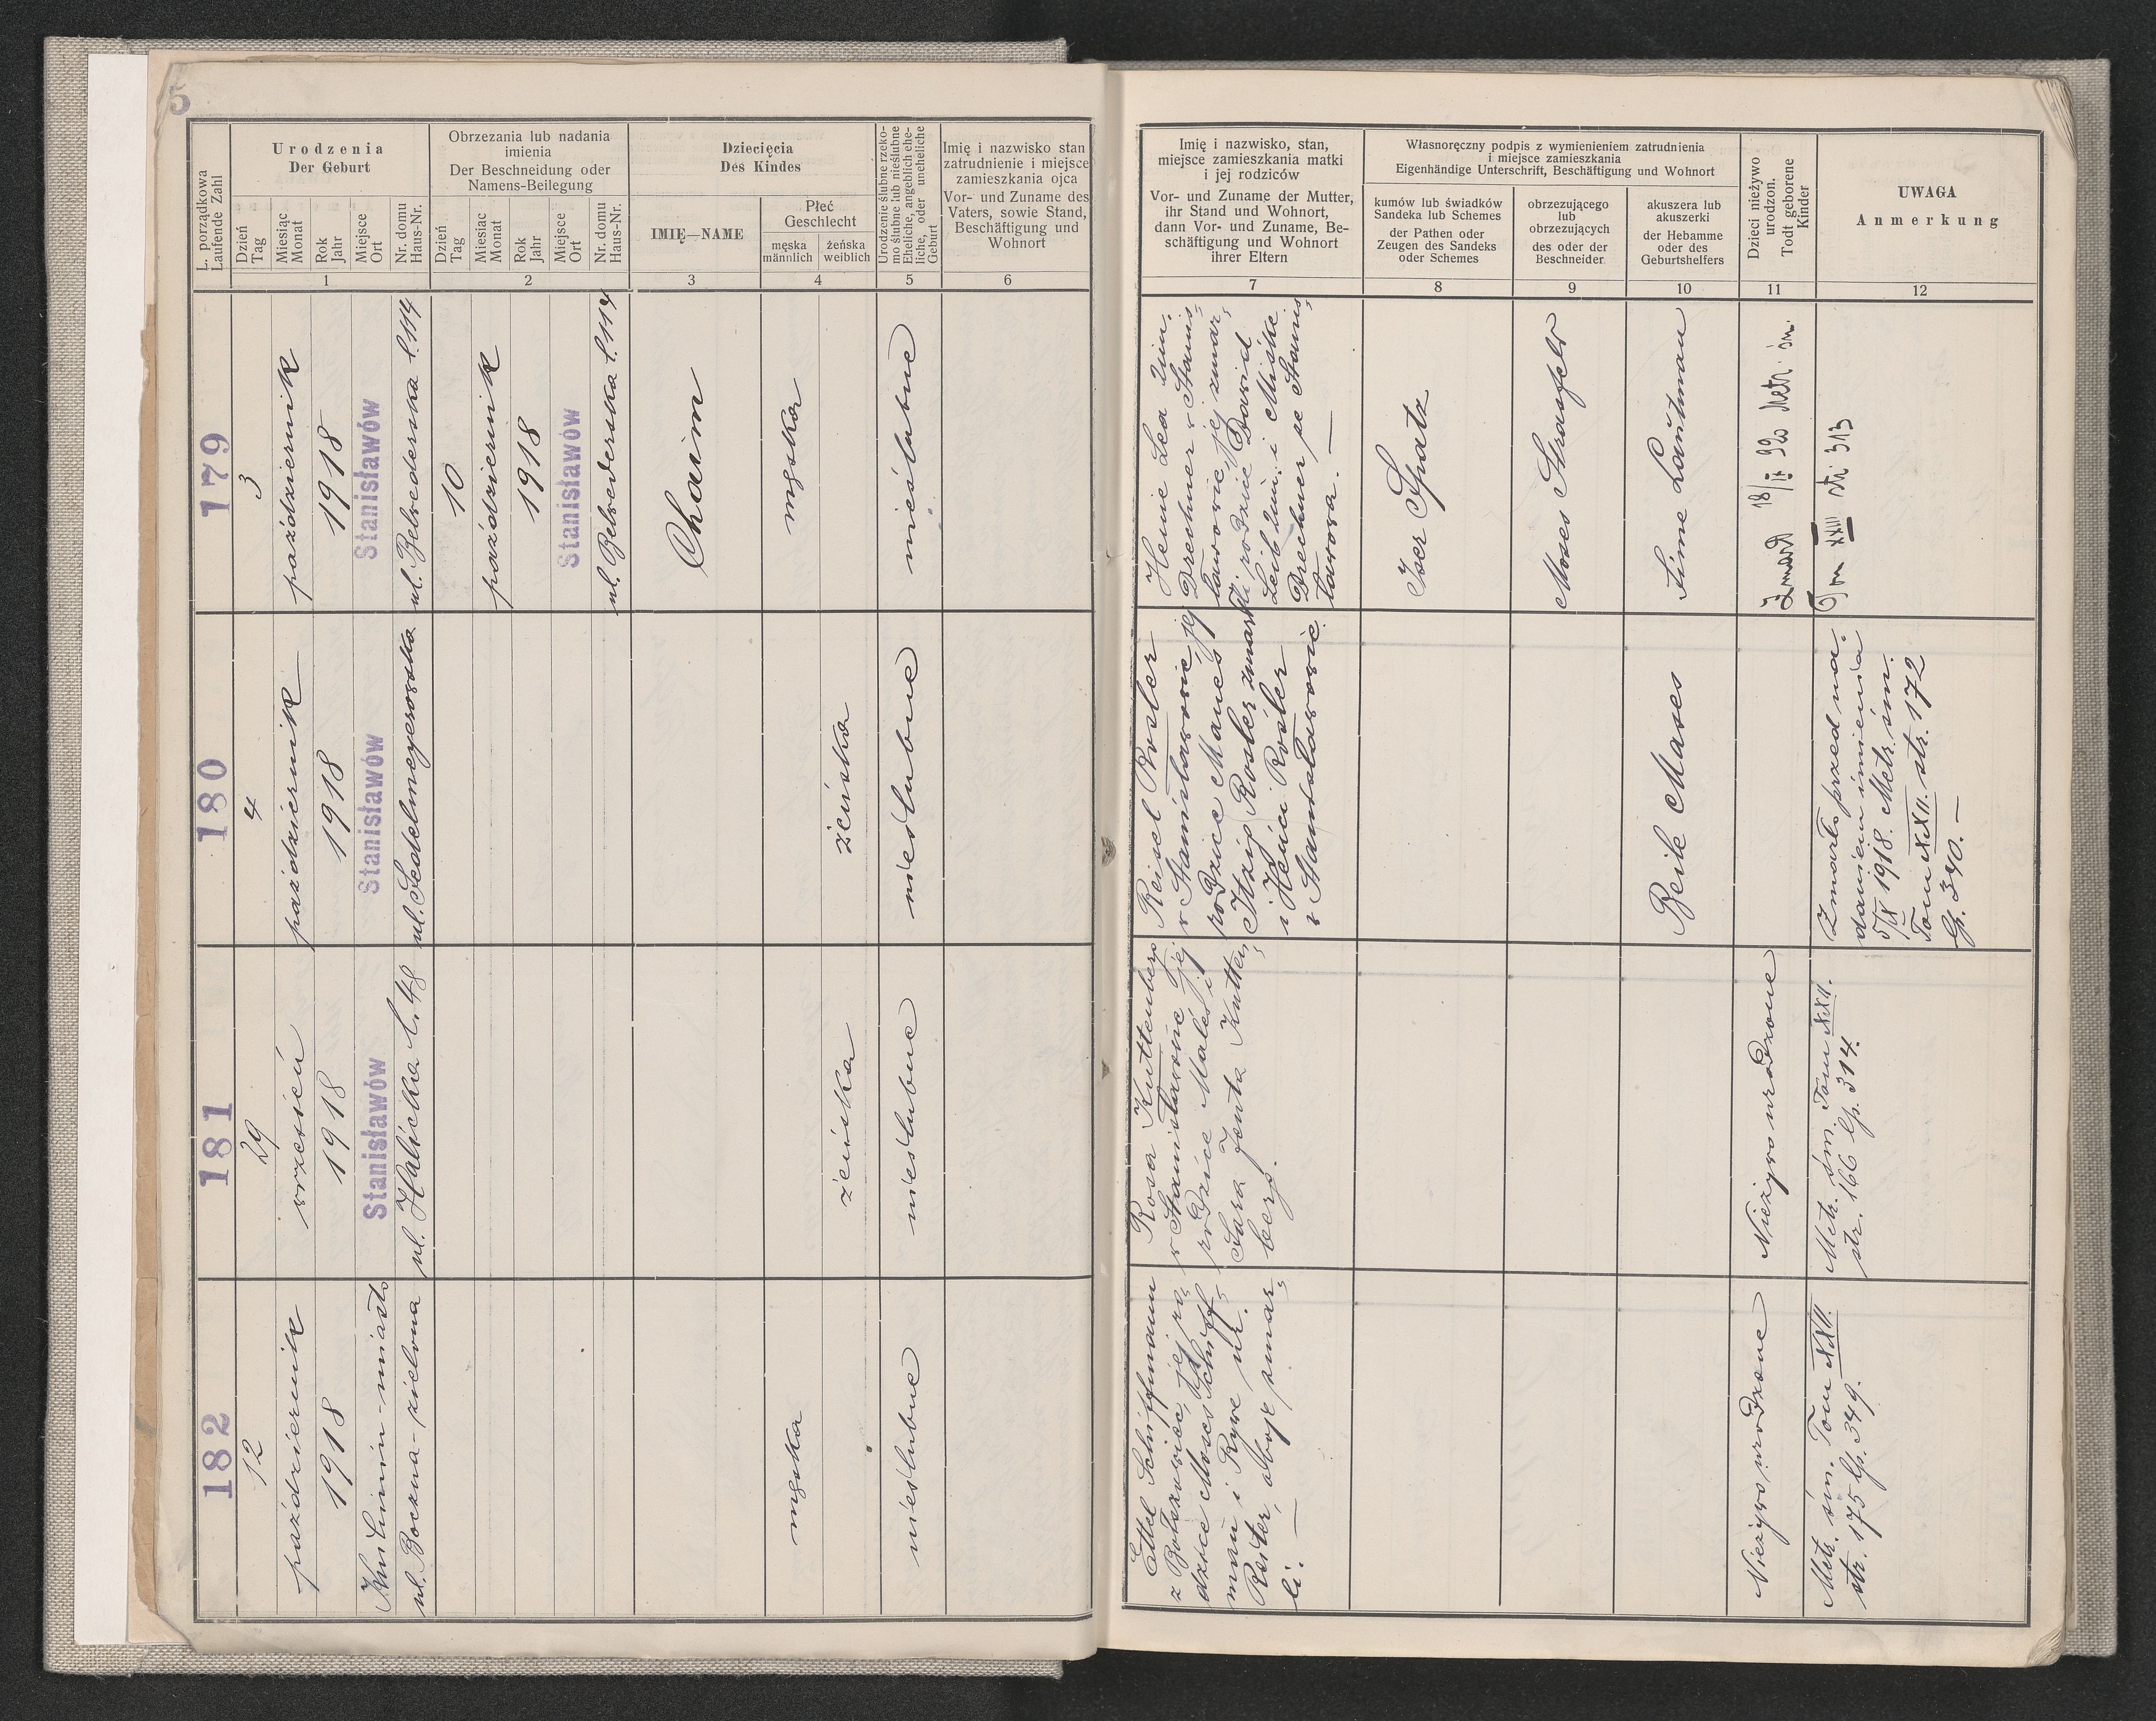 5
L. porządkowa
Laufende Zahl
Urodzenia
Der Geburt
Dzień
Tag
Miesiąc
Monat
Rok
Jahr
Miejsce
Ort
Nr. domu
Haus-Nr.
1
Obrzezania lub nadania
imienia
Der Beschneidung oder
Namens-Beilegung
Dzień
Tag
Miesiąc
Monat
Rok
Jahr
Miejsce
Ort
Nr. domu
Haus-Nr.
2
Dziecięcia
Des Kindes
IMIĘ—NAME
3
Płeć
Geschlecht
męska
männlich
żeńska
weiblich
4
Urodzenie ślubne rzeko-
mo ślubne lub nieślubne
Eheliche, angeblich ehe-
liche, oder uneheliche
Geburt
5
Imię i nazwisko stan
zatrudnienie i miejsce
zamieszkania ojca
Vor- und Zuname des
Vaters, sowie Stand,
Beschäftigung und
Wohnort
6
Imię i nazwisko, stan,
miejsce zamieszkania matki
i jej rodziców
Vor- und Zuname der Mutter,
ihr Stand und Wohnort,
dann Vor- und Zuname, Be-
schäftigung und Wohnort
ihrer Eltern
7
Własnoręczny podpis z wymienieniem zatrudnienia
i miejsce zamieszkania
Eigenhändige Unterschrift, Beschäftigung und Wohnort
kumów lub świadków
Sandeka lub Schemes
der Pathen oder
Zeugen des Sandeks
oder Schemes
8
obrzezującego
lub
obrzezujących
des oder der
Beschneider
9
akuszera lub
akuszerki
der Hebamme
oder des
Geburtshelfers
10
Dzieci nieżywo
urodzon.
Todt geborene
Kinder
11
UWAGA
Anmerkung
12
179
3
październik
1918
Stanisławów
ul. Belwederska l. 114
10
październik
1918
Stanisławów
ul. Belwederska l. 114
Chaim
męska
nieślubne
Henie Lea
Drechmer w Stanis-
ławowie, jej zmar,
li rodzice Dawid
Leib i Miśke
Drechmer ze Stanis,
ławowa. —
Iser Spatz
Moses Strasfeld
Sime Lautman
Zmarł 18/ 920 Metr. śm.
Tom XXIII str 313
180
4
październik
1918
Stanisławów
ul. Sedelmeyerowska
żeńska
nieślubne
Reisel Rosler
w Stanisławowie jej
rodzice Manes
Itzig Rosler zmarł
i Henci Rosler
w Stanisławowie
Beile Mases
Zmarło przed na-
daniem imienia
5/X 1918. Metr. śm.
Tom XXII. str. 172
lp. 340. —
181
29
wrzesień
1918
Stanisławów
ul. Halicka l. 48
żeńska
nieślubne
Rosa Kuttenberg
w Stanisławowie jej
rodzice Males i
Sara Jenta Kutten,
berg.
Nieżywo urodzone
Metr. śm. Tom XXII.
str. 166 lp. 314.
182
12
październik
1918
Knihinin-miasto
ul. Boczna-zielona
męska
nieślubne
Ettel Schiffmann
z Bolszowiec, jej ro,
dzice Moses Schiff,
man i Rywe ur.
Reiter, oboje zmar,
li. —
Nieżywo urodzone
Metr. śm. Tom XXII.
str. 175 lp. 349.